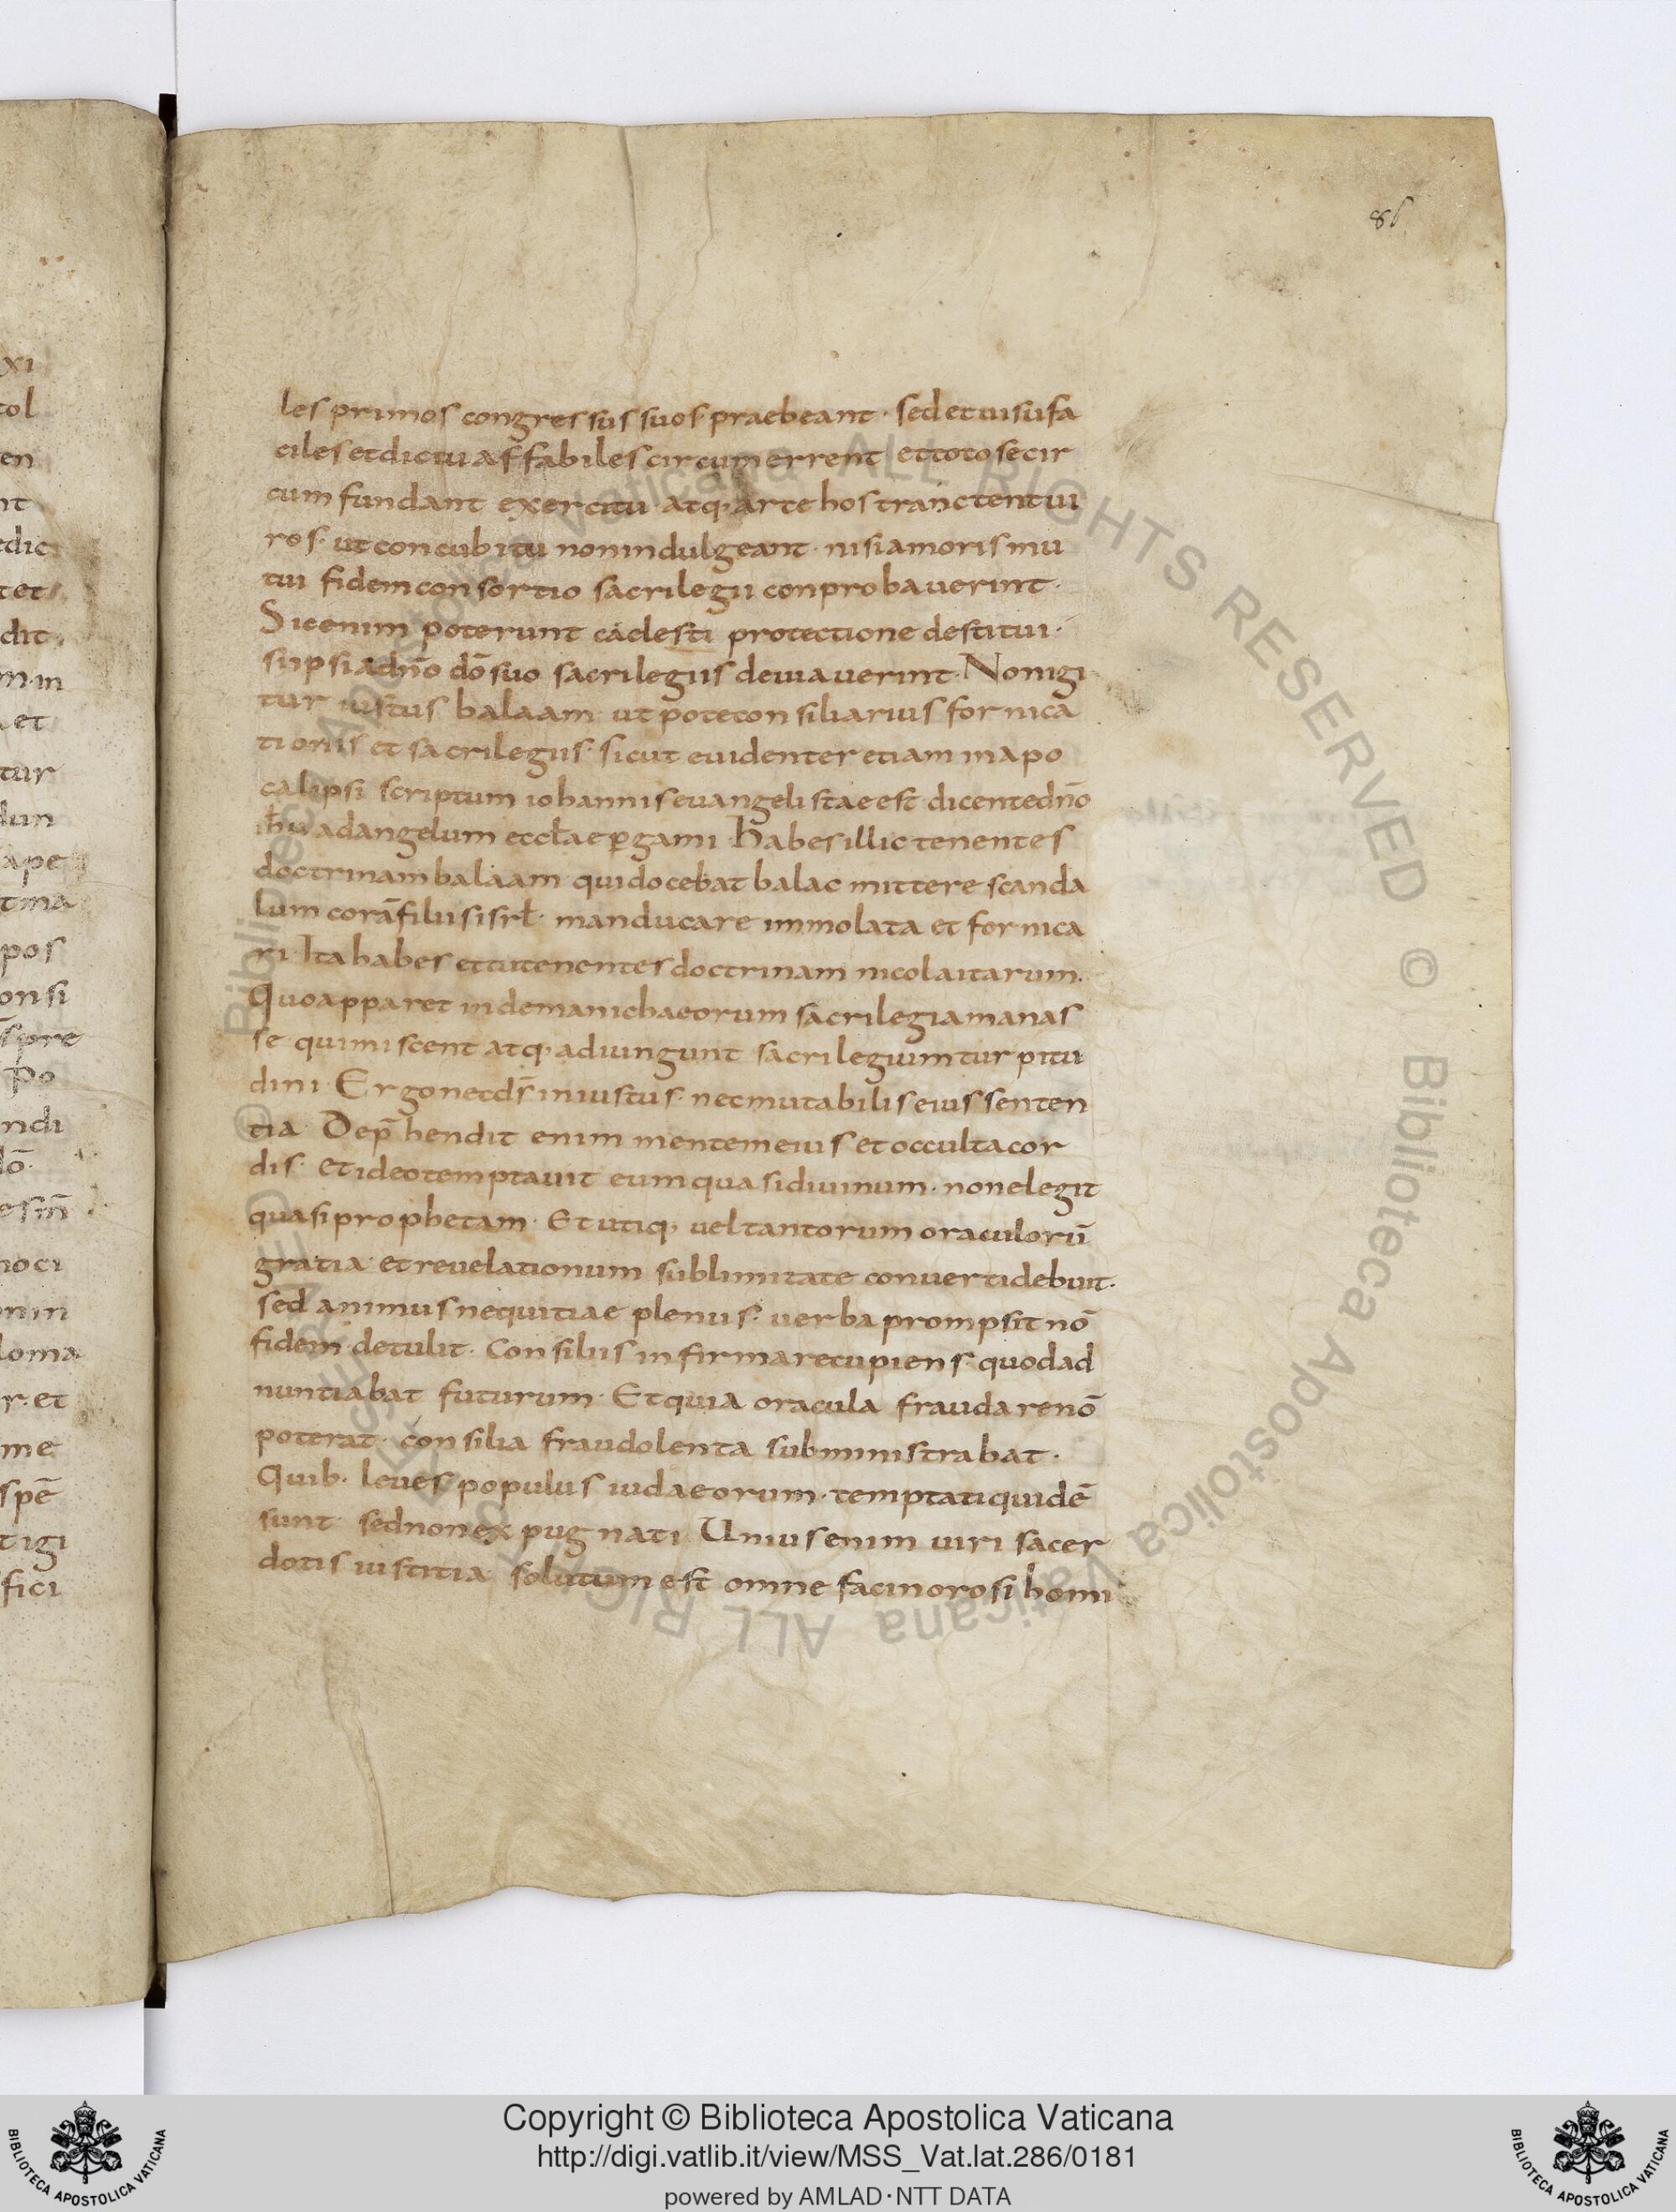 86
les primos congressus suos praebeant · sed et uisu fa
ciles et dictu affabiles circumerrent et toto se cir
cumfundant exercitu atq; arte hos tranctent ui
ros · ut concubitu non indulgeant · nisi amoris mu
tui fidem consortio sacrilegii conprobauerint ·
Sic enim poterunt caelesti protectione destitui ·
si ipsi a dn̄o dō suo sacrilegiis deuiauerint · Non igi
tur iustus balaam ut pote consiliarius fornica
tionis et sacrilegiis · sicut euidenter etiam in apo
calipsi scriptum iohannis euangelistae est dicente dn̄o
ih̄u ad angelum eccƚae p̱gami habes illic tenentes
doctrinam balaam qui docebat balac mittere scanda
lum corā filiis isrƚ · manducare immolata et fornica
ri · Ita habes et tu tenentes doctrinam nicolaitarum ·
Quo apparet inde manichaeorum sacrilegia manas
se qui miscent atq; adiungunt sacrilegium turpitu
dini · Ergo nec dś iniustus · nec mutabilis eius senten
tia · Dep̄hendit enim mentem eius et occulta cor
dis · et ideo temptauit eum quasi diuinum · non elegit
quasi prophetam · Et utiq; uel tantorum oraculorū
gratia et reuelationum sublimitate conuerti debuit ·
sed animus nequitiae plenus · uerba prompsit nō
fidem detulit · Consiliis infirmare cupiens · quod ad
nuntiabat futurum · Et quia oracula fraudare nō
poterat · consilia fraudolenta subministrabat ·
Quib · leues populus iudaeorum · temptati quidē
sunt sed non expugnati Unius enim uiri sacer
dotis iustitia solutum est omne facinorosi homi
xi
tol
en
nt
edic
tet
dit
m · in
et
tur
dun
ape
tma
pos
onsi
spre
po
ndi
dō ·
noci
nin
loma
r · et
me
spē
t igi
fici
© Biblioteca Apostolica Vaticana ALL RIGHTS RESERVED
© Biblioteca Apostolica Vaticana ALL RIGHTS RESERVED
BIBLIOTECA APOSTOLICA VATICANA
Copyright © Biblioteca Apostolica Vaticana
http://digi.vatlib.it/view/MSS_Vat.lat.286/0181
powered by AMLAD·NTT DATA
BIBLIOTECA APOSTOLICA VATICANA